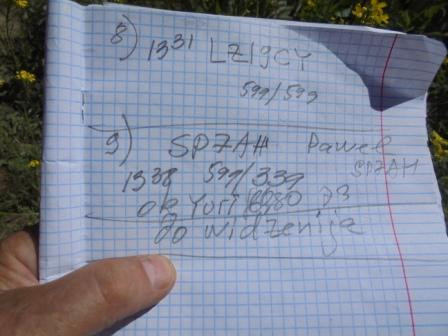 8) 1331 LZ1gCY
599/599
9) SP7AH Pawel
SP7AH
1338 599/339
ok Yuri 73
do widzenija